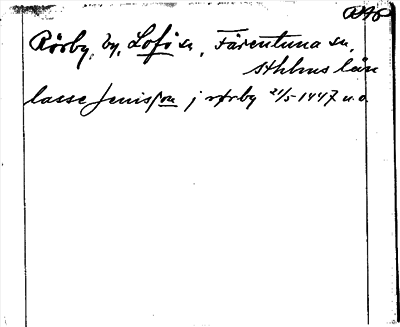 Rörby, by, Lofö sn, Färentuna sn,
Sthlms län
lasse Jenisson j rørby 21/5 1447 u.o.